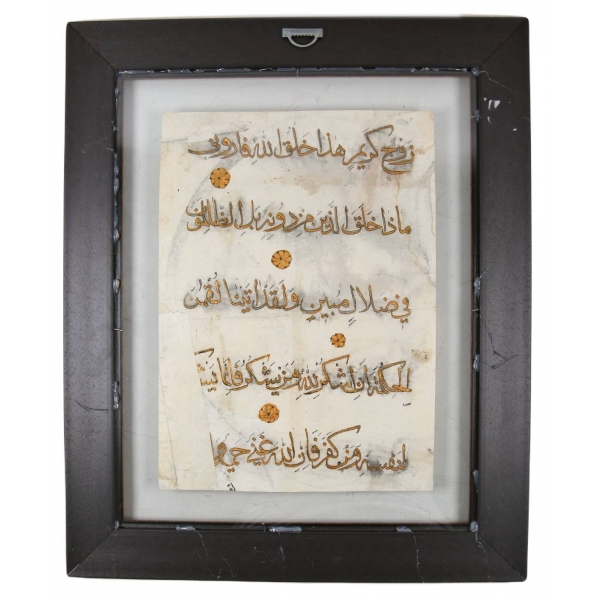 زوج كريم هذا خلق الله فاروني
ماذا خلق الذين من دونه بل الظالمون
في ضلال مبين ولقد اتينا لقمن
الحكمة ان اشكر لله ومن يشكر فانما يشكر
لنفسه ومن كفر فان الله غني حميد